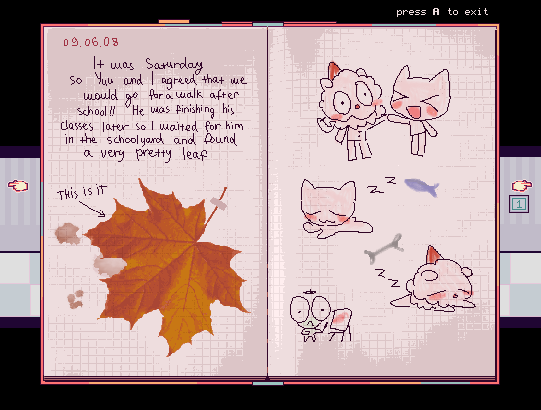 press A to exit
09.06.08
It was Saturday
so Yuu and I agreed that we
would go for a walk after
school!! He was finishing his
classes later so I waited for him
in the schoolyard and found
a very pretty leaf
THIS IS IT
1